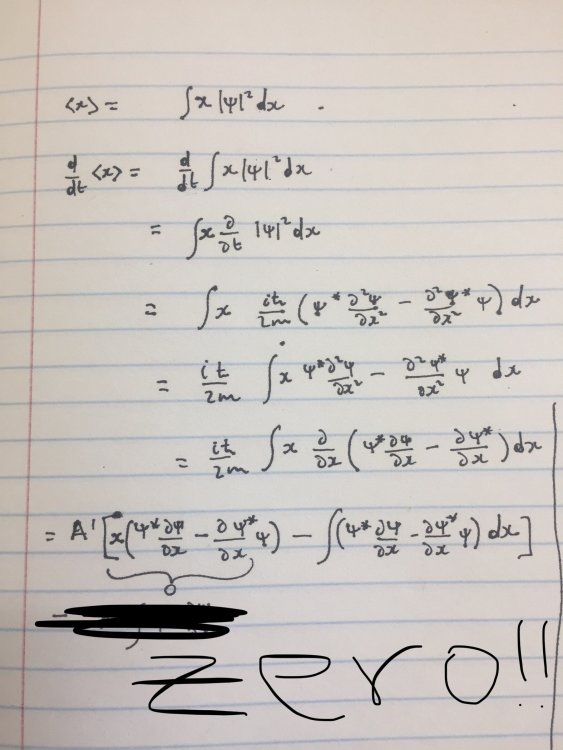 <x> = ∫ x |ψ|² dx .
d/dt <x> = d/dt ∫ x |ψ|² dx
= ∫ x ∂/∂t |ψ|² dx
= ∫ x iħ/2m (ψ* ∂²ψ/∂x² − ∂²ψ*/∂x² ψ) dx
= iħ/2m ∫ x ψ* ∂²ψ/∂x² − ∂²ψ*/∂x² ψ dx
= iħ/2m ∫ x ∂/∂x (ψ* ∂ψ/∂x − ∂ψ*/∂x) dx
= A' [x (ψ* ∂ψ/∂x − ∂ψ*/∂x ψ) − ∫(ψ* ∂ψ/∂x − ∂ψ*/∂x ψ) dx]
0
zero!!